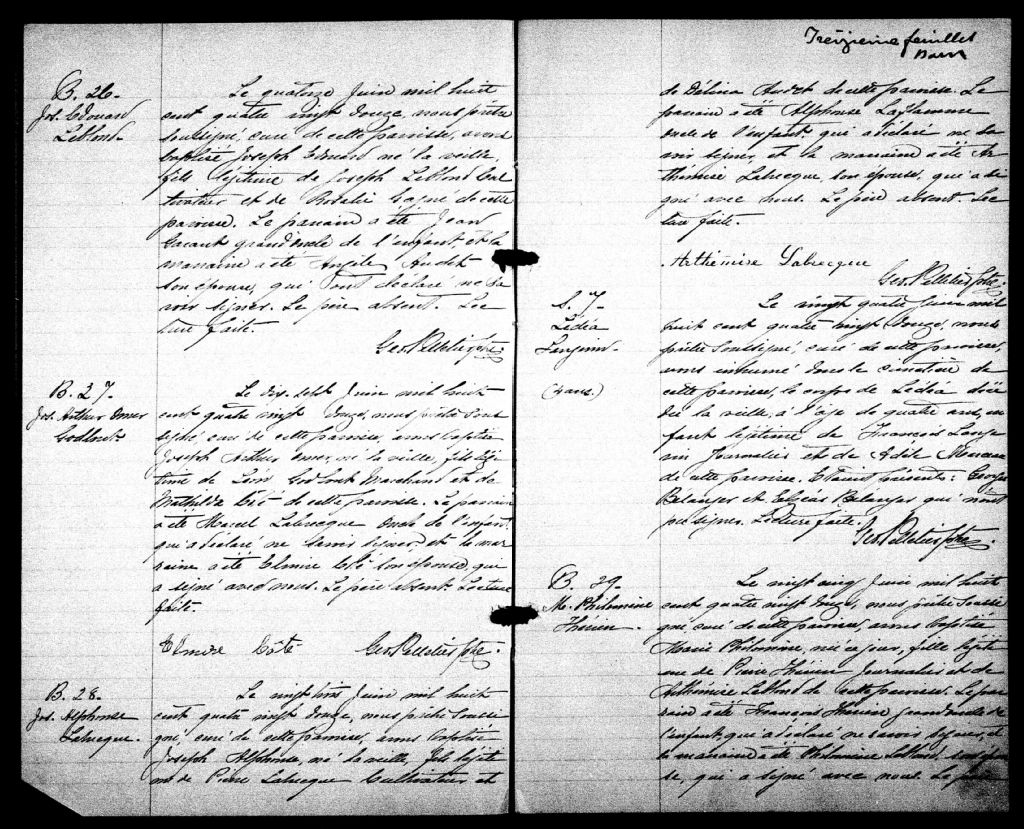 B. 26.
Jos. Edouard
Leblond.
Le quatorze Juin mil huit
cent quatre vingt douze, nous prêtre
soussigné, curé de cette paroisse, avons
baptisé Joseph Edouard né la veille,
fils légitime de Joseph Leblond Cul
tivateur et de Rosalie Gagné de cette
paroisse. Le parrain a été Jean
grand oncle de l'enfant, et la
marraine a été Angèle Audet
son épouse, qui ont déclaré ne sa
voir signer. Le père absent. Lec
ture faite.
Geo. Pelletier Ptre.
B. 27.
Jos. Arthur Omer
Godbout
Le dix-sept Juin mil huit
cent quatre vingt douze, nous prêtre sous
signé, curé de cette paroisse, avons baptisé
Joseph Arthur Omer, né la veille, fils légi
time de Léon Godbout Marchand et de
Mathilde Côté de cette paroisse. Le parrain
a été Marcel Labrecque Oncle de l'enfant
qui a déclaré ne savoir signer, et la mar
raine a été Elmire Côté son épouse, qui
a signé avec nous. Le père absent. Lecture
faite.
Elmire Côté Geo. Pelletier Ptre.
B. 28.
Jos. Alphonse
Labrecque.
Le vingt trois Juin mil huit
cent quatre vingt douze, nous prêtre soussi
gné, curé de cette paroisse, avons baptisé
Joseph Alphonse, né la veille, fils légiti
me de Pierre Labrecque Cultivateur et
Treizieme feuillet
de Délina Audet de cette paroisse. Le
parrain a été Alphonse Laflamme
oncle de l'enfant, qui a déclaré ne sa
voir signer, et la marraine a été Ar
thémise Labrecque, son épouse, qui a si
gné avec nous. Le père absent. Lec
ture faite.
Arthémise Labrecque
Geo. Pelletier Ptre.
S. 7.
Lédia
Langevin.
(4 ans.)
Le vingt quatre Juin mil
huit cent quatre vingt douze, nous
prêtre soussigné, curé de cette paroisse,
avons inhumé dans le cimetière de
cette paroisse, le corps de Lédia décé
dée la veille, à l'âge de quatre ans, en
fant légitime de François Lange
vin Journalier et de Adèle
de cette paroisse. Etaient présents: George
Belanger et Elzéar Belanger qui n'ont
pu signer. Lecture faite.
Geo. Pelletier Ptre.
B. 29.
M. Philomine
Thérien.
Le vingt cinq Juin mil huit
cent quatre vingt douze, nous prêtre soussi
gné, curé de cette paroisse, avons baptisé
Marie Philomine, née ce jour, fille légiti
me de Pierre Thérien Journalier et de
Arthémise Leblond de cette paroisse. Le par
rain a été François Thérien grand oncle de
l'enfant, qui a déclaré ne savoir signer, et
la marraine a été Philomine Leblond, son épou
se, qui a signé avec nous. Le père